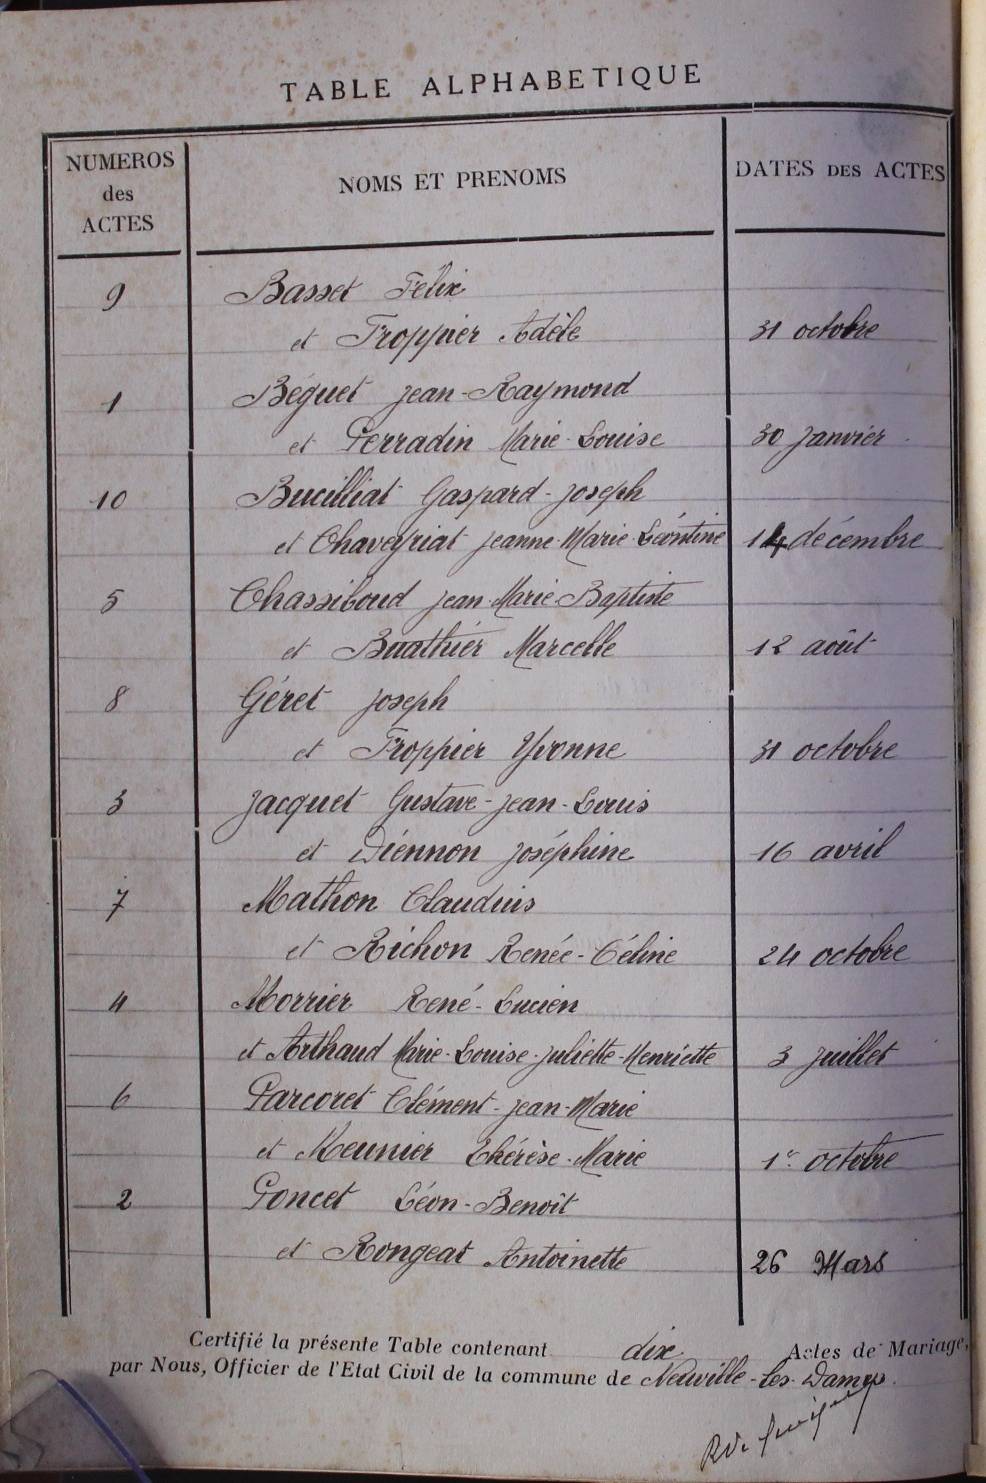 TABLE ALPHABETIQUE
NUMEROS des ACTES
NOMS ET PRENOMS
DATES DES ACTES
9 Basset Félix
et Troppier Adèle 31 octobre
1 Béguet Jean-Raymond
et Perradin Marie-Louise 30 Janvier
10 Bucilliat Gaspard-Joseph
et Chaveyriat Jeanne-Marie-Léontine 14 décembre
5 Chassiboud Jean-Marie-Baptiste
et Buathier Marcelle 12 août
8 Géret Joseph
et Troppier Yvonne 31 octobre
3 Jacquet Gustave-Jean-Louis
et Diennon Joséphine 16 avril
7 Mathon Claudius
et Richon Renée-Céline 24 octobre
4 Morrier René-Lucien
et Arthaud Marie-Louise-Juliette-Henriette 3 Juillet
6 Parcoret Clément-Jean-Marie
et Meunier Thérèse-Marie 1er octobre
2 Poncet Léon-Benoît
et Rongeat Antoinette 26 Mars
Certifié la présente Table contenant dix Actes de Mariage,
par Nous, Officier de l'Etat Civil de la commune de Neuville-les-Dames.